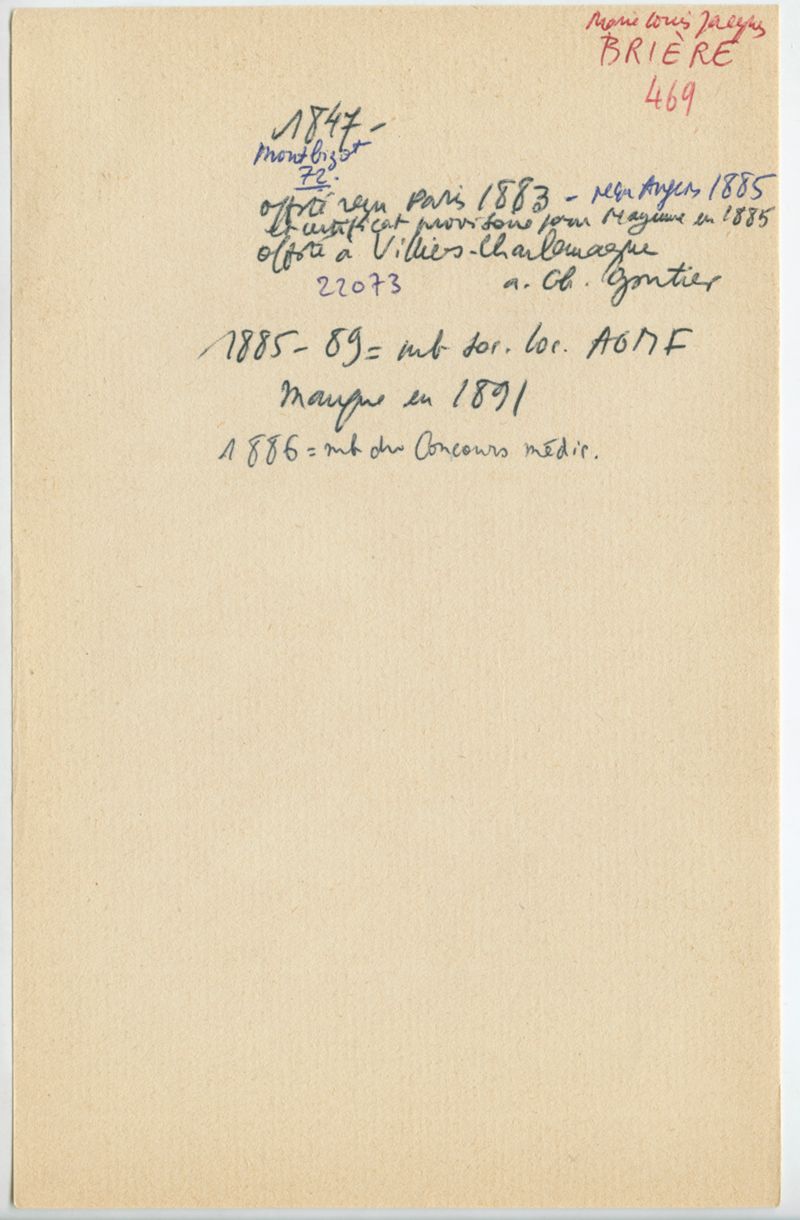 Marie Louis Jacques
BRIÈRE
469
1847 -
Montbizot
72.
offté reçu Paris 1883 - reçu Angers 1885
et certificat provisoire pour Mayenne en 1885
offté à Villiers-Charlemagne
22073 a. Ch. Gontier
1885 - 89 = mb soc. loc. AGMF
Manque en 1891
1886 = mb du Concours médic.